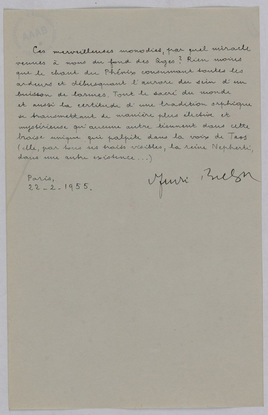 Ces merveilleuses monodies, par quel miracle
venues à nous du fond des âges ? Rien moins
que le chant du Phénix consumant toutes les
ardeurs et débusquant l'aurore du sein d'un
buisson de larmes. Tout le sacré du monde
et aussi la certitude d'une tradition orphique
se transmettant de manière plus élective et
mystérieuse qu'aucune autre tiennent dans cette
braise unique qui palpite dans la voix de Taos
(elle, par tous ses traits visibles, la reine Nepherti,
dans une autre existence...)
Paris,
22-2-1955.